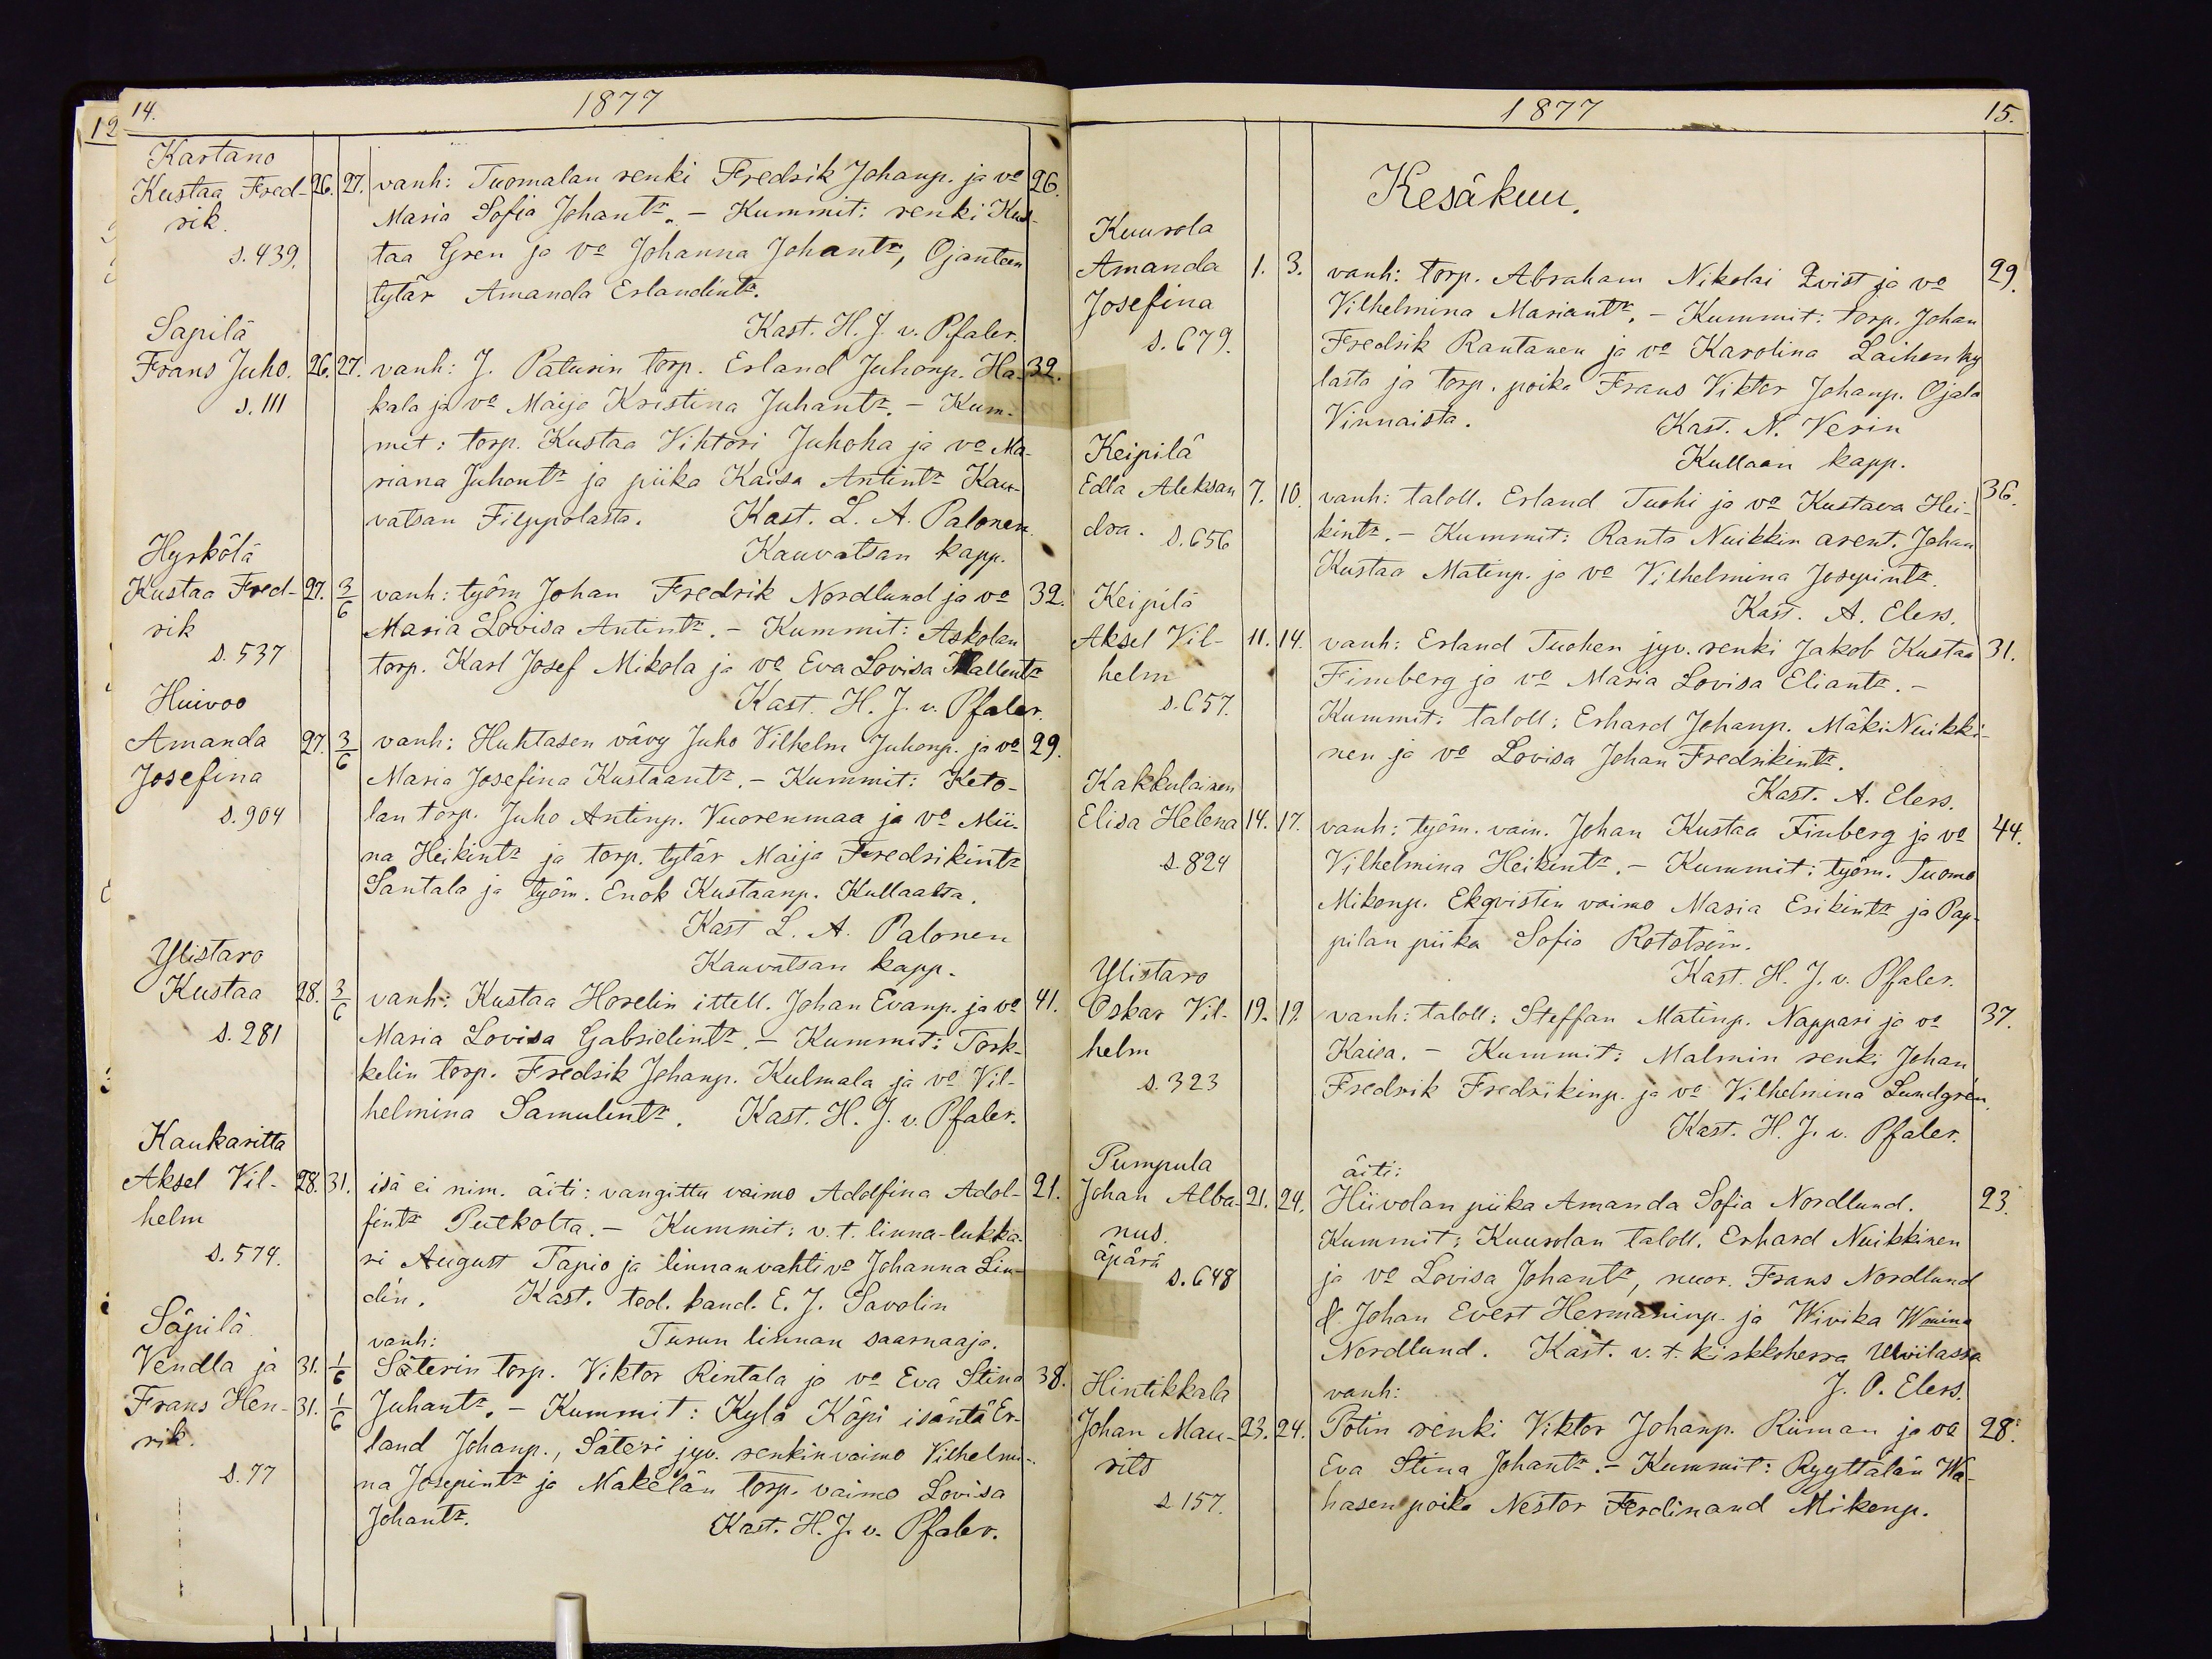 14.
1877
Kartano
Kustaa Fred- 26. 27. vanh: Tuomalan renki Fredrik Johanp. ja vo 26.
rik. Maria Sofia Johantr. - Kummit: renki Kus-
s. 439. taa Gren ja vo Johanna Johantr, Ojanteen
tytär Amanda Erlandintr.
Säpilä Kast. H. J. v. Pfaler.
Frans Juho. 26. 27. vanh: J. Paturin torp. Erland Juhonp. Ha- 32.
s. 111 kala ja vo Maija Kristina Juhantr. - Kum-
mit: torp. Kustaa Vihtori Juhoha ja vo Ma-
riana Juhontr ja piika Kaisa Antintr Kau-
vatsan Filppolasta. Kast. L. A. Palonen
Hyrkölä Kauvatsan kapp.
Kustaa Fred- 27. 3/6 vanh: työm Johan Fredrik Nordlund ja vo 32.
rik Maria Lovisa Antintr. - Kummit: Askolan
s. 537 torp. Karl Josef Mikola ja vo Eva Lovisa Kallentr
Huivoo Kast. H. J. v. Pfaler.
Amanda 27. 3/6 vanh: Huhtasen vävy Juho Vilhelm Juhonp. ja vo 29.
Josefina Maria Josefina Kustaantr. - Kummit: Keto-
s. 904 lan torp. Juho Antinp. Vuorenmaa ja vo Mii-
na Heikintr ja torp. tytär Maija Fredrikintr
Santala ja työm. Enok Kustaanp. Kullaalta.
Kast L. A. Palonen
Ylistaro Kauvatsan kapp.
Kustaa 28. 3/6 vanh: Kustaa Horelin ittell. Johan Evanp. ja vo 41.
s. 281 Maria Lovisa Gabrielintr. - Kummit: Tork-
kelin torp. Fredrik Johanp. Kulmala ja vo Vil-
helmina Samulintr. Kast. H. J. v. Pfaler.
Kaukaritta
Aksel Vil- 28. 31. isä ei nim. äiti: vangittu vaimo Adolfina Adol- 21.
helm fintr Putkolta. - Kummit: v. t. linna-lukka-
s. 574. ri August Tapio ja linnanvahti vo Johanna Lin-
dén. Kast. teol. kand. E. J. Savolin
Säpilä vanh: Turun linnan saarnaaja.
Vendla ja 31. 1/6 Säterin torp. Viktor Rintala ja vo Eva Stina 38.
Frans Hen- 31. 1/6 Juhantr. - Kummit: Kylä Käpi isäntä Er-
rik. land Johanp., Säteri jyv. renkin vaimo Vilhelmi-
s. 77 na Josepintr ja Mäkelän torp. vaimo Lovisa
Johantr. Kast. H. J. v. Pfaler.
1877
15.
Kesäkuu.
Kuurola
Amanda 1. 3. vanh: torp. Abraham Nikolai Qvist ja vo 29.
Josefina Vilhelmina Mariantr. - Kummit: torp. Johan
s. 679. Fredrik Rantanen ja vo Karolina Laihon ky
lästä ja torp. poika Frans Viktor Johanp. Ojala
Vinnaista. Kast. N. Verin
Keipilä Kullaan kapp.
Edla Aleksan 7. 10. vanh: taloll. Erland Tuohi ja vo Kustava Hei- 36.
dra. s. 656 kintr. - Kummit: Ranta Nuikkin arent. Johan
Kustaa Matinp. ja vo Vilhelmina Josepintr.
Keipilä Kast. A. Elers.
Aksel Vil- 11. 14. vanh: Erland Tuohen jyv. renki Jakob Kustaa 31.
helm Finberg ja vo Maria Lovisa Eliantr. -
s. 657. Kummit: taloll: Erhard Johanp. Mäki Nuikki-
nen ja vo Lovisa Johan Fredrikintr.
Kakkulainen Kast. A. Elers.
Elisa Helena 14. 17. vanh: työm. vain. Johan Kustaa Finberg ja vo 44.
s. 824 Vilhelmina Heikintr. - Kummit: työm. Tuomo
Mikonp. Ekqvistin vaimo Maria Erikintr ja Pap-
pilan piika Sofia
Ylistaro Kast. H. J. v. Pfaler.
Oskar Vil- 19. 19. vanh: taloll: Steffan Matinp. Nappari ja vo 37.
helm Kaisa. - Kummit: Malmin renki Johan
s. 323 Fredrik Fredrikinp. ja vo Vilhelmina Lundgrén.
Kast. H. J. v. Pfaler.
Pumpula äiti:
Johan Alba- 21. 24. Hiivolan piika Amanda Sofia Nordlund. 23.
nus. Kummit: Kuurolan taloll. Erhard Nuikkinen
äpärä s. 648 ja vo Lovisa Johantr, nuor. Frans Nordlund
& Johan Evert Hermaninp. ja Wivika Wmina
Nordlund. Kast. v. t. kirkkoherra Ulvilassa
Hintikkala vanh: J. P. Elers.
Johan Mau- 23. 24. Potin renki Viktor Johanp. Riiman ja vo 28.
rits Eva Stina Johantr. - Kummit: Ryyttälän Wa-
s 157. hasen poika Nestor Ferdinand Mikonp.